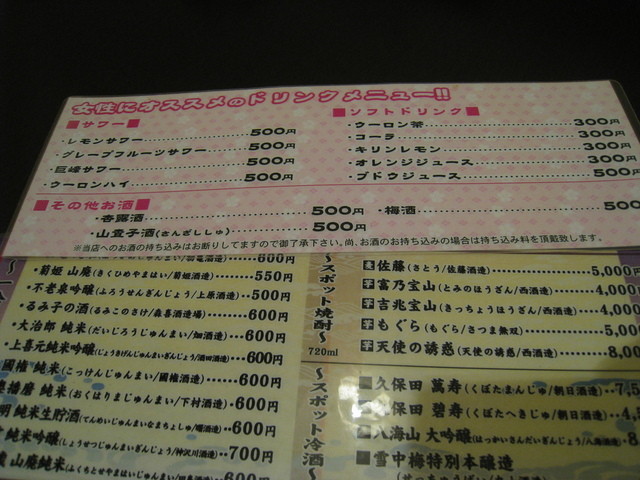 女性にオススメのドリンクメニュー!!
■サワー■
・レモンサワー……500円
・グレープフルーツサワー……500円
・巨峰サワー……500円
・ウーロンハイ……500円
■ソフトドリンク■
・ウーロン茶……300円
・コーラ……300円
・キリンレモン……300円
・オレンジジュース……300円
・ブドウジュース……500円
■その他お酒■
・杏露酒……500円
・山査子酒(さんざししゅ)……500円
・梅酒……500
※当店へのお酒の持ち込みはお断りしてますので御了承下さい。尚、お酒のお持ち込みの場合は持ち込み料を頂戴致します。
・菊姫 山廃(きくひめやまはい/菊姫酒造)……550円
・不老泉吟醸(ふろうせんぎんじょう/上原酒造)…500円
・るみ子の酒(るみこのさけ/森喜酒造場)……600円
・大治郎 純米(だいじろうじゅんまい/畑酒造)…600円
・上喜元純米吟醸(じょうきげんじゅんまいぎんじょう/酒田酒造)…600円
國権 純米(こっけんじゅんまい/國権酒造)……600円
播磨 純米(おくはりまじゅんまい/下村酒造)…600円
明 純米生貯酒(てんめいじゅんまいなまちょしゅ/曙酒造)…600円
純米吟醸(しょうせつじゅんまいぎんじょう/神沢川酒造)…700円
山廃純米
600円
～スポット焼酎～
720ml
麦 佐藤(さとう/佐藤酒造)……5,000
芋 富乃宝山(とみのほうざん/西酒造)……4,000
芋 吉兆宝山(きっちょうほうざん/西酒造)……4,000
芋 もぐら(もぐら/さつま無双)……5,000
芋 天使の誘惑(天使の誘惑/西酒造)……8,00
～スポット冷酒～
■久保田 萬寿(くぼたまんじゅ/朝日酒造)…7,5
久保田 碧寿(くぼたへきじゅ/朝日酒造)…4,
八海山 大吟醸(はっかいさんだいぎんじょう/八海酒造)
■雪中梅特別本醸造